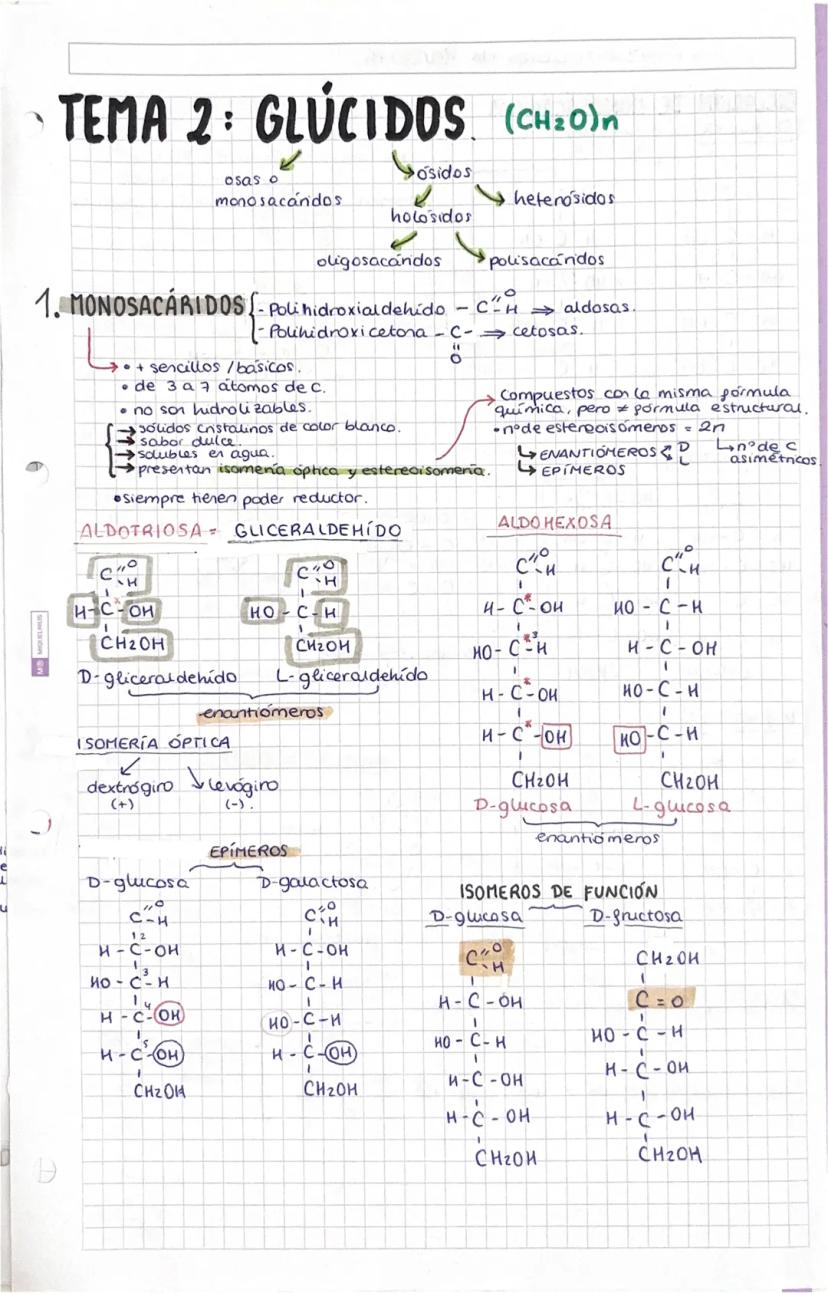 TEMA 2: GLÚCIDOS. (CH2O)n
osas o
monosacáridos
ósidos
holósidos
heterósidos
oligosacáridos
polisacáridos
1. MONOSACÁRIDOS
- Polihidroxialdehído - C=O -H ⇒ aldosas.
- Polihidroxicetona - C - ⇒ cetosas.
O
• + sencillos / básicos.
• de 3 a 7 átomos de C.
• no son hidrolizables.
→ sólidos cristalinos de color blanco.
→ sabor dulce.
→ solubles en agua.
→ presentan isomería óptica y estereoisomería.
• siempre tienen poder reductor.
Compuestos con la misma fórmula
química, pero ≠ fórmula estructural.
• nº de estereoisómeros = 2n
↳ nº de C
asimétricos
↳ ENANTIÓMEROS < D
L
↳ EPÍMEROS
ALDOTRIOSA = GLICERALDEHÍDO
C=O
-H
H-C*-OH
CH2OH
D-gliceraldehído
C=O
-H
HO-C-H
CH2OH
L-gliceraldehído
enantiómeros
ALDOHEXOSA
C=O
-H
H-C*-OH
HO-C*3-H
H-C*-OH
H-C*-OH
CH2OH
D-glucosa
C=O
-H
HO-C-H
H-C-OH
HO-C-H
HO-C-H
CH2OH
L-glucosa
enantiómeros
ISOMERÍA ÓPTICA
dextrógiro
(+)
levógiro
(-).
EPÍMEROS
D-glucosa
C=O
-H
1 2
H-C-OH
3
HO-C-H
4
H-C-OH
5
H-C-OH
CH2OH
D-galactosa
C=O
-H
H-C-OH
HO-C-H
HO-C-H
H-C-OH
CH2OH
ISOMEROS DE FUNCIÓN
D-glucosa
C=O
-H
H-C-OH
HO-C-H
H-C-OH
H-C-OH
CH2OH
D-fructosa
CH2OH
C=O
HO-C-H
H-C-OH
H-C-OH
CH2OH
MIQUELRIUS